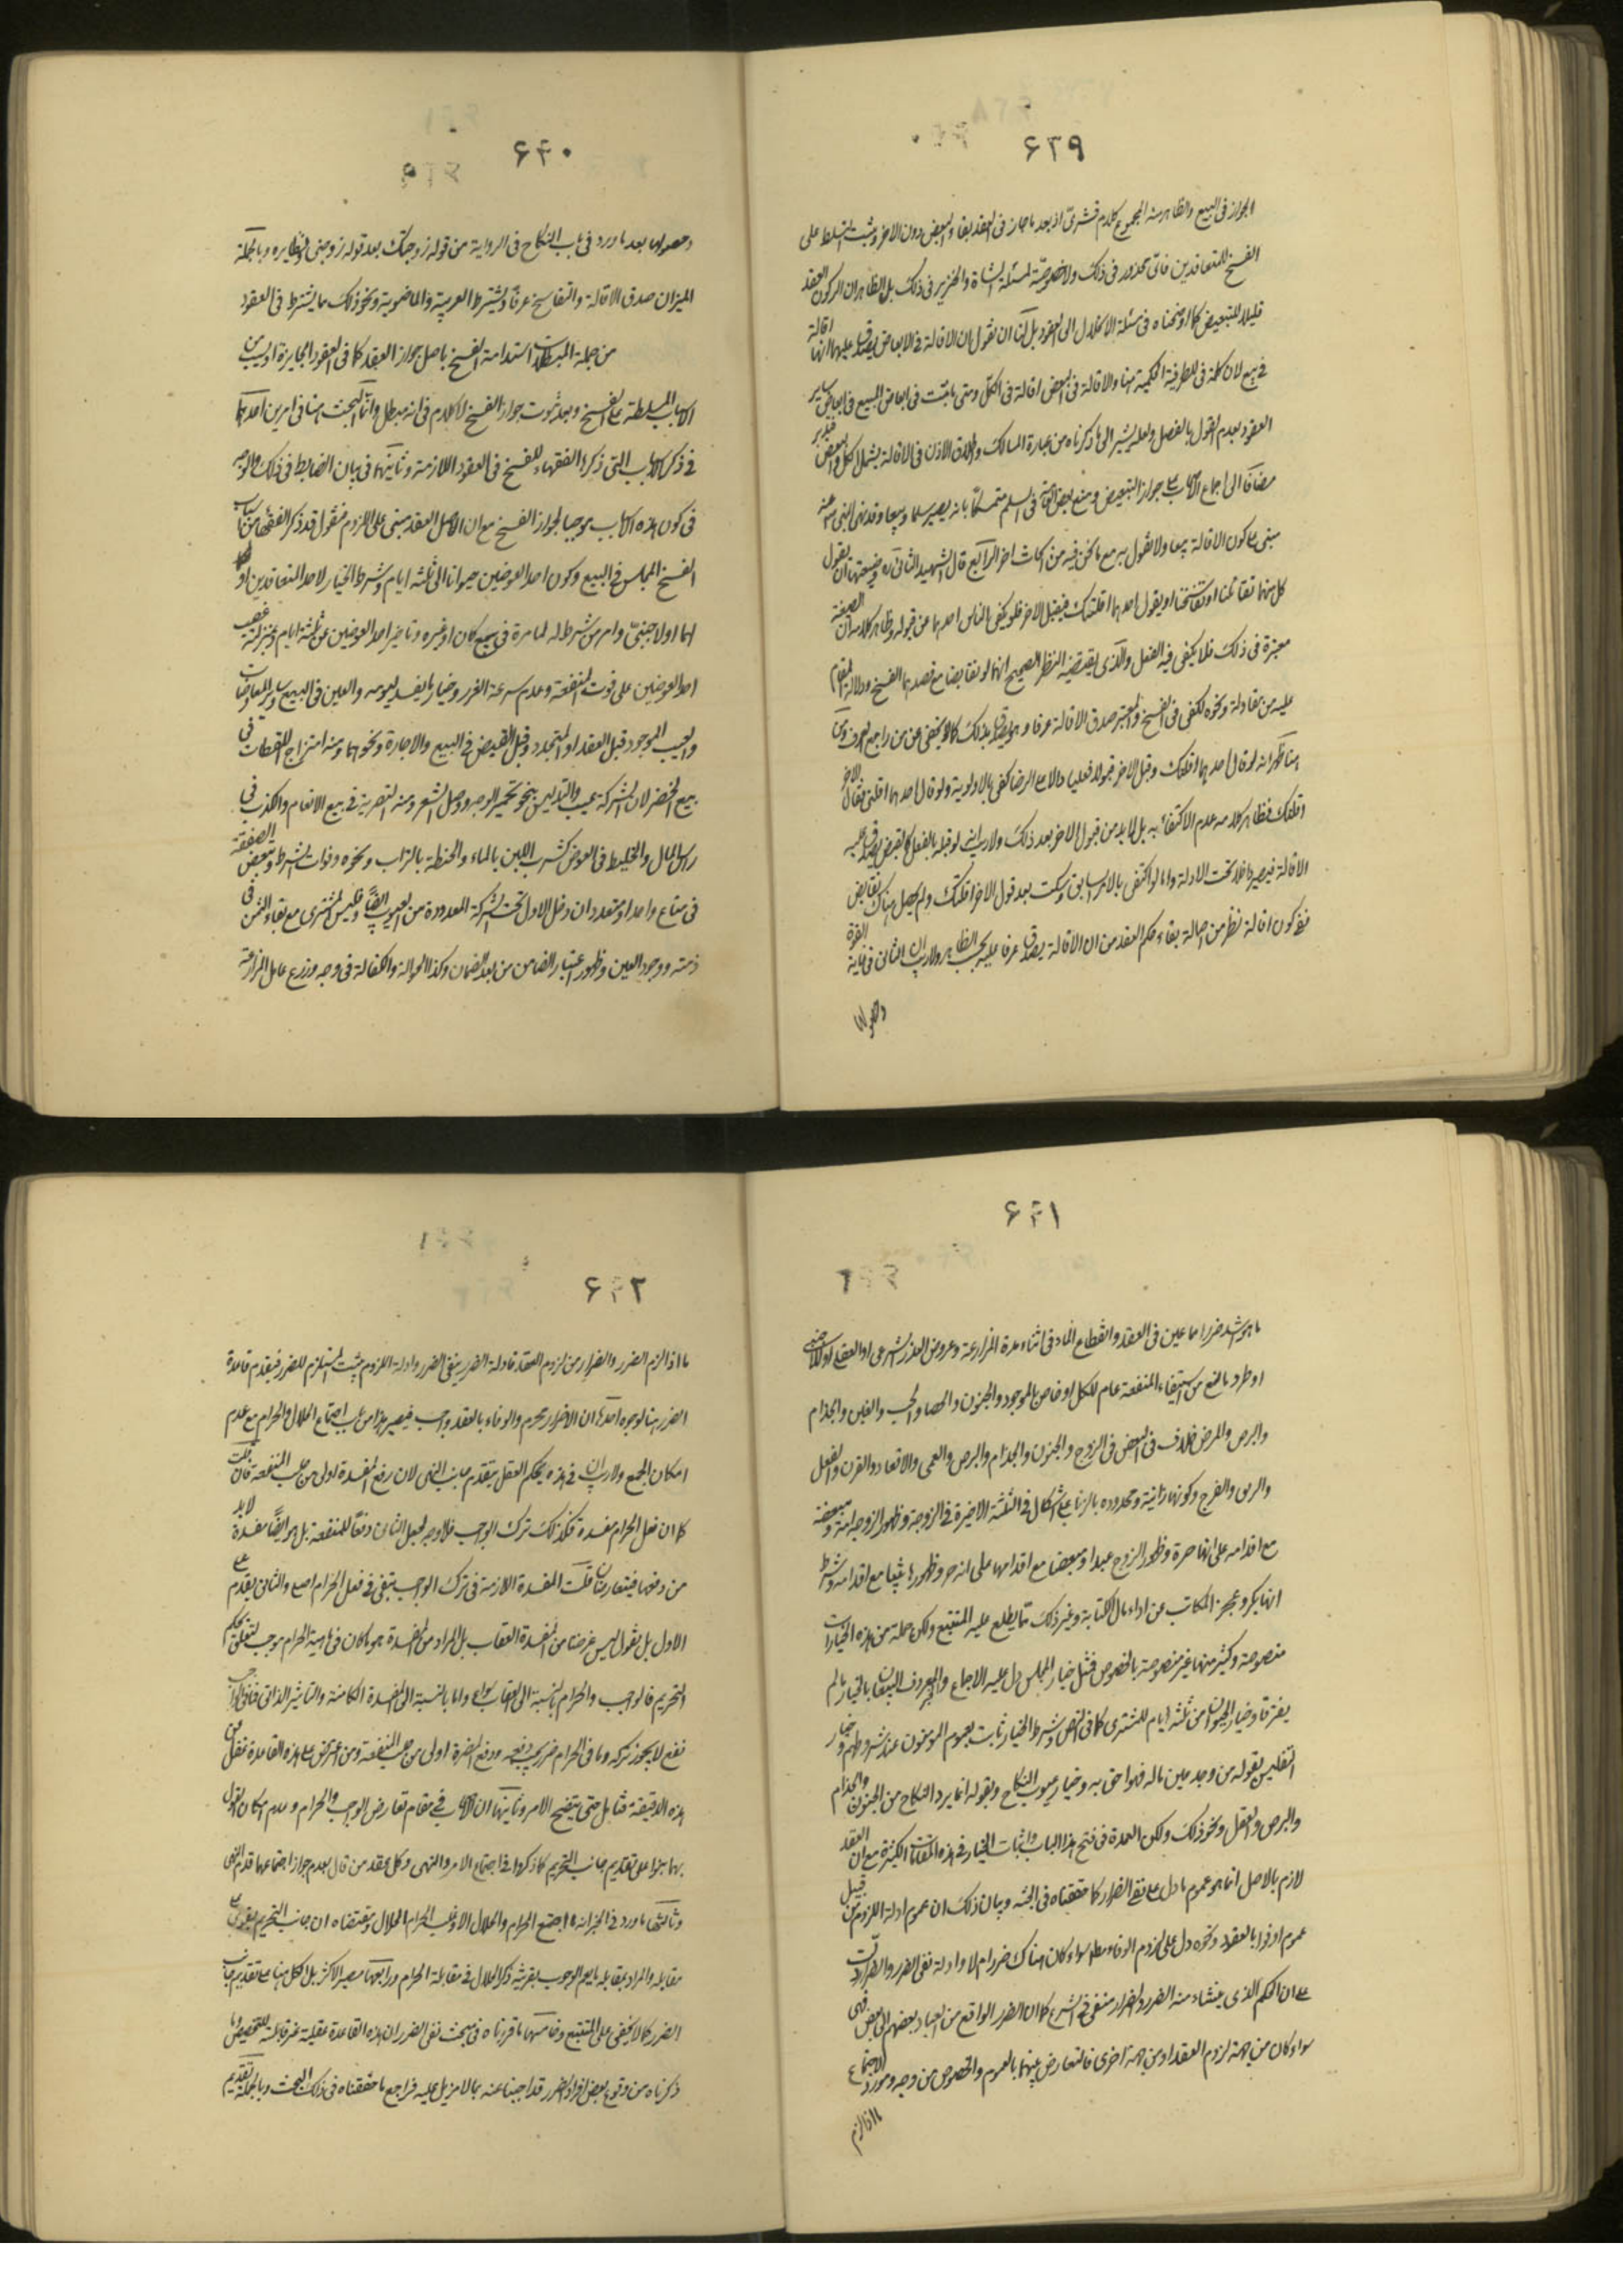 ۶۳۹
الجواز فى البيع والظاهر منه المجموع كلام قشرى اذ بعد ما جاز فى العقد بقاء البعض دون الاخر وثبت التسلط على
الفسخ للمتعاقدين فاى محذور فى ذلك ولا خصوصية لمسئلة الشاة والخنزير فى ذلك بل الظاهر ان الركون العقد
قابلا للتبعيض كما اوضحناه فى مسئلة الانحلال الى العقود بل لنا ان نقول ان الاقالة فى الابعاض يصدق عليها انها اقالة
فى بيع لان كلمة فى للظرفية الحكمية هنا والاقالة فى البعض اقالة فى الكل ومتى ما ثبت فى ابعاض المبيع فى ابعاض ساير
العقود بعدم القول بالفصل ولعله يشير الى ما ذكرناه من عبارة المسالك واطلاق الاذن فى الاقالة يشمل الكل والبعض فتدبر
مضافا الى اجماع الاصحاب على جواز التبعيض ومنع بعض العامة فى السلم متمسكا بانه يصير سلما وبيعا وقد نهى النبى عنه
مبنى على كون الاقالة بيعا ولا نقول به مع ما نحن فيه من ابحاث اخر الرابع قال الشهيد الثانى ره وصيغتها ان يقول
كل منهما تقايلنا او تفاسخنا او يقول احدهما اقلتك فيقبل الاخر فلو يكفى التماس احدهما عن قبوله وظاهر كلامه ان الصيغة
معتبرة فى ذلك فلا يكفى فيه الفعل والذى يقتضيه النظر الصحيح انهما لو تقايضا مع قصدهما الفسخ ودلالة المقام
عليه من مقاولة ونحوه لكفى فى الفسخ والمعتبر صدق الاقالة عرفا وهو يصدق بذلك كما لا يخفى على من راجع العرف ومن
هنا ظهر انه لو قال احدهما اقلتك وقبل الاخر قبولا فعليا دالا على الرضا كفى بالاولوية ولو قال احدهما اقلنى فقال الاخر
اقلتك فظاهر كلامه عدم الاكتفاء به بل لابد من قبول الاخر بعد ذلك ولا ريب انه لو قبله بالفعل كالقبض يصدق عليه
الاقالة فيصير داخلا تحت الادلة واما لو اكتفى بالامر السابق وسكت بعد قول الاخر اقلتك ولم يحصل هناك تقابض
ففى كونه اقالة نظر من اصالة بقاء حكم العقد من ان الاقالة يصدق عرفا عليه بحسب الظاهر ولا ريب ان الثانى فى غاية القوة
وحصولها
۶۴۰
وحصولها بعد ما ورد فى باب النكاح فى الرواية من قوله زوجتك بعد قوله زوجنى ونظايره وبالجملة
الميزان صدق الاقالة والتفاسخ عرفا ولا يشترط العربية والماضوية ونحو ذلك مما يشترط فى العقود
من جملة المبطلات استدامة الفسخ باصل جواز العقد كما فى العقود الجايزة او بسبب من
الاسباب المسلطة على الفسخ وبعد ثبوت جواز الفسخ لا كلام فى انه مبطل وانما البحث هنا فى امرين احدهما
فى ذكر الاسباب التى ذكرها الفقهاء للفسخ فى العقود اللازمة وثانيهما فى بيان الضابط فى ذلك والوجه
فى كون هذه الاسباب موجبا لجواز الفسخ مع ان الاصل العقد مبنى على اللزوم فنقول قد ذكر الفقهاء من اسباب
الفسخ المجلس فى البيع وكون احد العوضين حيوانا الى ثلثة ايام وشرط الخيار لاحد المتعاقدين او
لهما او لاجنبى وامر من شرط له لمامرة فى بيع كان او غيره وتاخير احد العوضين عن ثلثة ايام وبمنزلته غصب
احد العوضين على فوت المنفعة وعدم سرعة الغرر وخيار ما يفسد ليومه والعين فى البيع وساير المعاوضات
والعيب الموجود قبل العقد او المتجدد وقبل القبض فى البيع والاجارة ونحوهما ومنه امتزاج اللقطات فى
بيع الخضر لان الشركة عيب والتدليس بنحو تحمير الوجه ووصل الشعر ومنه التصرية فى بيع الانعام والكذب فى
راس المال والخليط فى العوض كشرب اللبن بالماء والحنطة بالتراب ونحوه وفوات الشرط وتبعض الصفقة
فى متاع واحد او متعدد ان دخل الاول تحت الشركة المعدودة من العيوب ايضا وتفليس المشترى مع بقاء الثمن فى
ذمته ووجود العين وظهور اعسار الضامن من بعد الضمان وكذا الحوالة والكفالة فى وجه وزرع عامل المزارعة
۶۴۱
ما هو اشد ضررا مما عين فى العقد وانقطاع الماء فى اثناء مدة المزارعة وعروض العذر الشرعى او العقلى
او طرو مانع من استيفاء المنفعة عام للكل او خاص بالموجود والجنون والخصاء والجب والعنن والجذام
والبرص والمرض خلاف فى البعض فى الزوج والجنون والجذام والبرص والعمى والاقعاد والقرن والعفل
والرتق والفرج وكونها زانية ومحدودة بالزنا على اشكال فى الثلثة الاخيرة فى الزوجة وظهور الزوجة امة او مبعضة
مع اقدامه على انها حرة وظهور الزوج عبدا او مبعضا مع اقدامها على انه حر وظهورها ثيبا مع اقدامه وشرط
انها بكر وعجز المكاتب عن اداء مال الكتابة وغير ذلك مما يطلع عليه المتتبع ولكن جملة من هذه الخيارات
منصوصة وكثير منها غير منصوصة بالخصوص فمثل خيار المجلس دل عليه الاجماع والمعروف البيعان بالخيار ما لم
يفترقا وخيار الحيوان من ثلثة ايام للمشترى كما فى النص وشرط الخيار ثابت بعموم المومنون عند شروطهم وخيار
التفليس بقوله من وجد عين ماله فهو احق به وخيار عيوب النكاح وبقوله انما يرد النكاح من الجنون والجذام
والبرص والعفل ونحو ذلك ولكن العمدة فى فتح هذا الباب واثبات الخيار فى هذه المقامات الكثيرة مع ان العقد
لازم بالاصل انما هو عموم ما دل على نفى الضرار كما حققناه فى الجنة وبيان ذلك ان عموم ادلة اللزوم من قبيل
عموم اوفوا بالعقود ونحوه دل على لزوم الوفاء مطلقا سواء كان هناك ضرر ام لا وادلة نفى الضرر والضرار دلت
على ان الحكم الذى ينشاء منه الضرر والضرار منفى فى الشرع كما ان الضرر الواقع من العباد بعضهم الى بعض منفى
سواء كان من جهة لزوم العقد او من جهة اخرى فالتعارض بينهما بالعموم والخصوص من وجه ومورد الاجتماع
ما اذا لزم
۶۴۲
ما اذا لزم الضرر والضرار من لزوم العقد فادلة الضرر ينفى الضرر وادلة اللزوم يثبت المستلزم للضرر فيقدم قاعدة
الضرر هنا لوجوه احدها ان الاضرار محرم والوفاء بالعقد واجب فيصير هذا من باب اجتماع الحلال والحرام مع عدم
امكان الجمع ولا ريب ان فى هذه يحكم العقل بتقدم جانب النهى لان رفع المفسدة اولى من جلب المنفعة فان قلت
كما ان فعل الحرام مفسدة فكذلك ترك الواجب فلا وجه لجعل الثانى دفعا للمنفعة بل هو ايضا مفسدة لابد
من دفعها فيتعارضان قلت المفسدة اللازمة فى ترك الواجب تبقى فى فعل الحرام اصلى والثانى يقدم على
الاول بل نقول ليس غرضنا من المفسدة العقاب بل المراد من المفسدة هو ما كان فى ماهية الحرام موجب لتعلق حكم
التحريم فالواجب والحرام بالنسبة الى العقاب سواء واما بالنسبة الى المفسدة الكامنة والتاثير الذاتى ففى الواجب
نفع لا يجوز تركه وما فى الحرام ضرر يجب دفعه ودفع المضرة اولى من جلب المنفعة ومن اعترض على هذه القاعدة غفل عن
هذه الدقيقة فتامل حتى يتضح الامر وثانيها ان الاصحاب فى مقام تعارض الواجب والحرام وعدم امكان القول
بهما بنوا على تقديم جانب التحريم كما ذكروا فى اجتماع الامر والنهى وكل معتقد من قال بعدم جواز اجتماعهما قدم النهى
وثالثها ما ورد فى الخبر انه ما اجتمع الحرام والحلال الا وغلب الحرام الحلال ومقتضاه ان جانب التحريم يقدم على
مقابله والمراد بمقابله ما يعم الوجوب بقرينة ذكر الحلال فى مقابلة الحرام ورابعها مصير الاكثر بل الكل هنا على تقديم جانب
الضرر كما لا يخفى على المتتبع وخامسها ما قررناه فى مبحث نفى الضرر ان هذه القاعدة عقلية غير قابلة للتخصيص وما
ذكرناه من وقوع بعض افراد الضرر قد اجبنا عنه بما لا مزيل عليه فراجع ما حققناه فى ذلك البحث وبالجملة تقديم